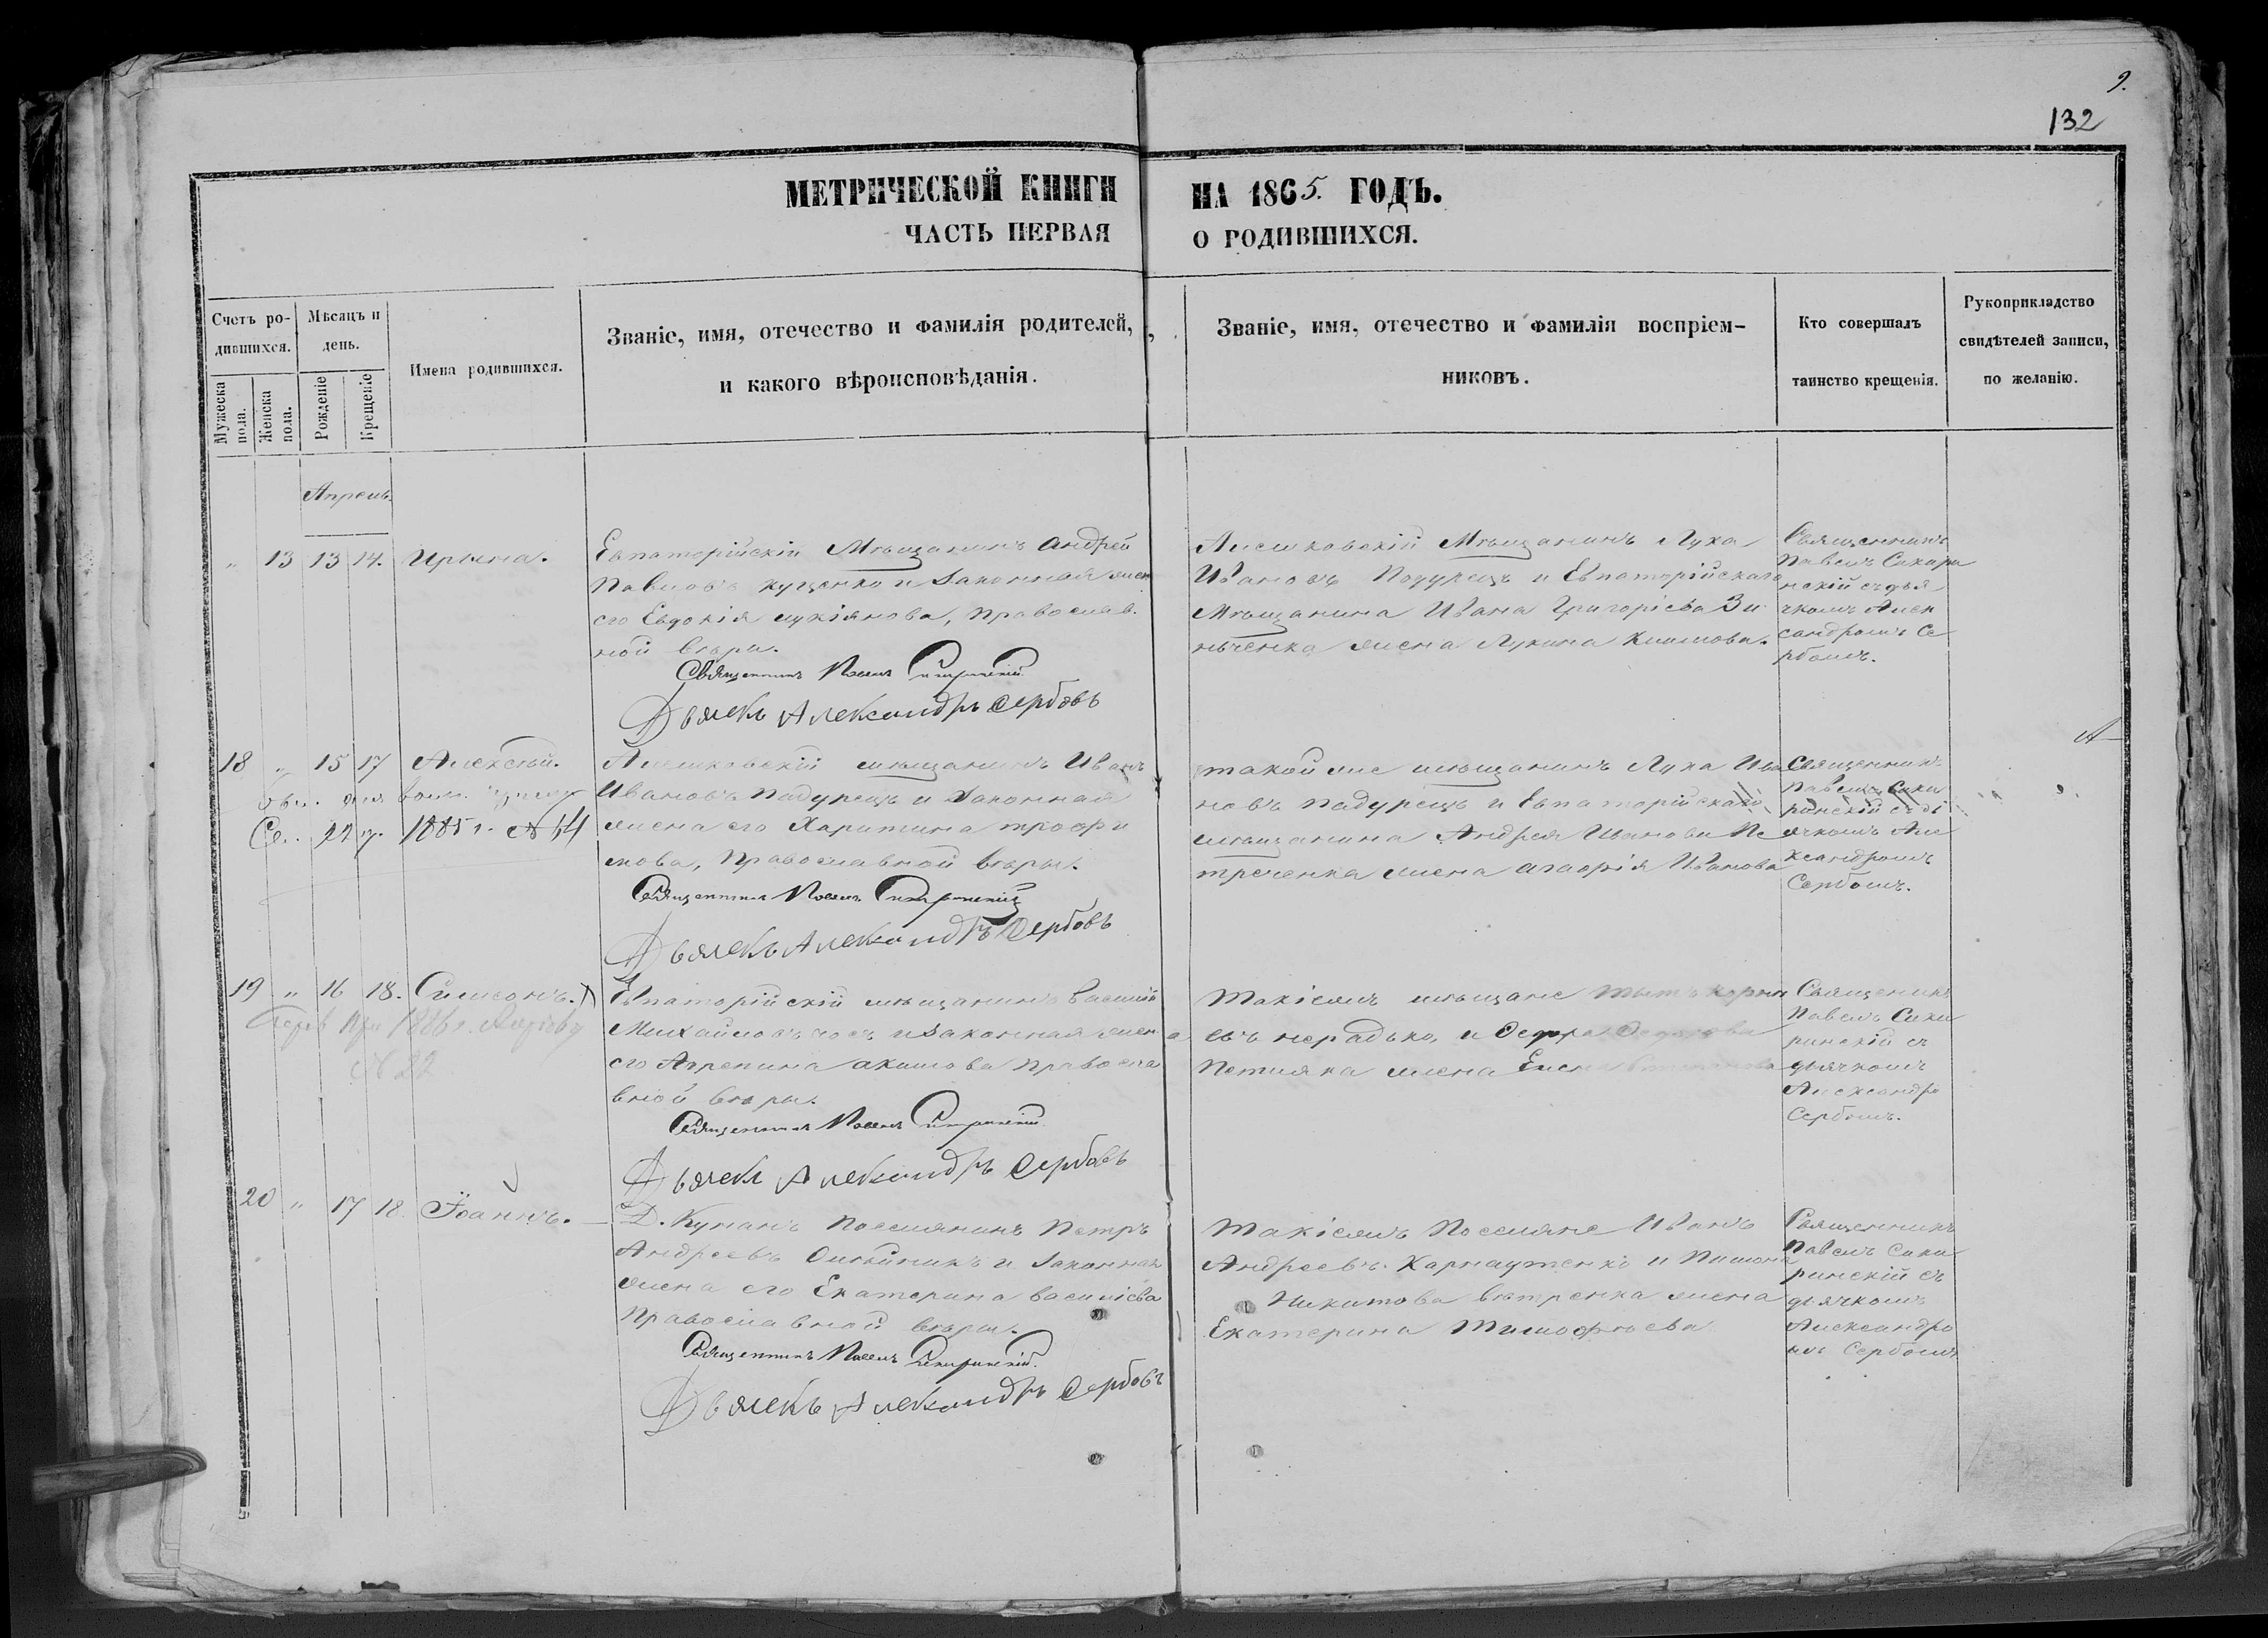 9.
132
МЕТРИЧЕСКОЙ КНИГИ НА 1865. ГОДЪ.
ЧАСТЬ ПЕРВАЯ О РОДИВШИХСЯ.
Счетъ ро-
дившихся.
Мужеска пола.
Женска пола.
Мѣсяцъ и
день.
Рожденіе
Крещеніе
Имена родившихся.
Званіе, имя, отечество и фамилія родителей,
и какого вѣроисповѣданія.
Званіе, имя, отечество и фамилія воспріем-
никовъ.
Кто совершалъ
таинство крещенія.
Рукоприкладство
свидѣтелей записи,
по желанію.
Апрель.
" 13 13 14. Ирына.
Евпаторійскій Мѣщанинъ Андрей
Павловъ Куценко и Законная жен
его Евдокія лукіянова, православ.
ной вѣры.
Священникъ Павелъ
Дьячекъ Александръ Сербовъ
Алешковскій Мѣщанинъ Лука
Ивановъ Падурецъ и Евпаторійскаго
Мѣщанина Ивана Григорієва Зи
нченка жена Лукина Климова.
Священникъ
Павелъ Сикири
нскій съ дья
чкомъ Алек
сандромъ Се
рбомъ.
18 " 15 17 Алексѣй.
1885 г. № 14
Алешковскій мѣщанинъ Иванъ
Ивановъ Падурецъ и Законная
жена его Харитина трофи
мова, Православной вѣры.
Священникъ Павелъ
Дьячекъ Александръ Сербовъ
такой же мѣщанинъ Лука Ива
новъ Падурецъ и Евпаторійскаго
мѣщанина Андрея Иванова Пе
треченка жена агафія Иванова
Священникъ
Павелъ Сики
ринскій съ дь
ячкомъ Але
ксандромъ
Сербомъ.
19 " 16 18. Симеонъ.
1886 г.
№ 22
Евпаторійскій мѣщанинъ Василій
Михайловъ и Законная жена
его Агрепина акимова правосла
вной вѣры.
Священникъ Павелъ
Дьячекъ Александръ Сербовъ
Такіежъ мѣщане
евъ нерадько, и
Петляка жена Елена
Священикъ
Павелъ Сики
ринскій съ
дьячкомъ
Александро
Сербомъ.
20 " 17 18. Іоаннъ.
Д. Поселянинъ Петръ
Андреевъ Олейникъ и Законная
жена его Екатерина василіева
Православной вѣры.
Священникъ Павелъ Сикиринскій.
Дьячекъ Александръ Сербовъ
Такіежъ Поселяне Иванъ
Андреевъ Карнаутенко и
Никитова вѣтренка жена
Екатерина Тимофѣева
Священникъ
Павелъ Сики
ринскій съ
дьячкомъ
Александро
мъ Сербомъ